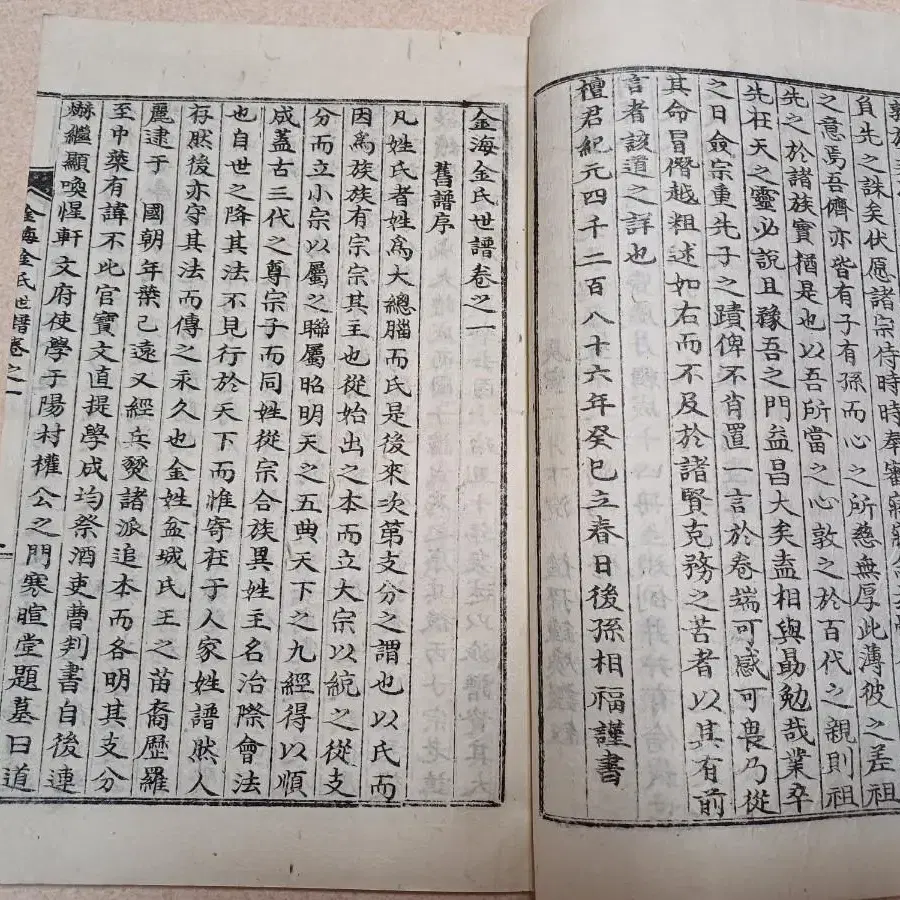 負先之誅矣伏愿諸宗侍時時奉審
之意焉吾儕亦皆有子有孫而心之所慈無厚此薄彼之差祖
先之於諸族實猶是也以吾所當之心敦之於百代之親則祖
先在天之靈必說且豫吾之門益昌大矣盍相與勗勉哉業卒
之日僉宗重先子之蹟俾不肖置一言於卷端可感可畏乃從
其命冒僭越粗述如右而不及於諸賢克務之苦者以其有前
言者該道之詳也
檀君紀元四千二百八十六年癸巳立春日後孫相福謹書
金海金氏世譜卷之一
舊譜序
凡姓氏者姓爲大總腦而氏是後來次第支分之謂也以氏而
因爲族族有宗宗其主也從始出之本而立大宗以統之從支
分而立小宗以屬之聯屬昭明天之五典天下之九經得以順
成蓋古三代之尊宗子而同姓從宗合族異姓主名治際會法
也自世之降其法不見行於天下而惟寄在于人家姓譜然人
存然後亦守其法而傳之永久也金姓盆城氏王之苗裔歷羅
麗逮于國朝年葉已遠又經兵燹諸派追本而各明其支分
至中葉有諱不此官寶文直提學成均祭酒吏曹判書自後連
爀繼顯喚惺軒文府使學于陽村權公之門寒暄堂題墓曰道
金海金氏世譜卷之一
一